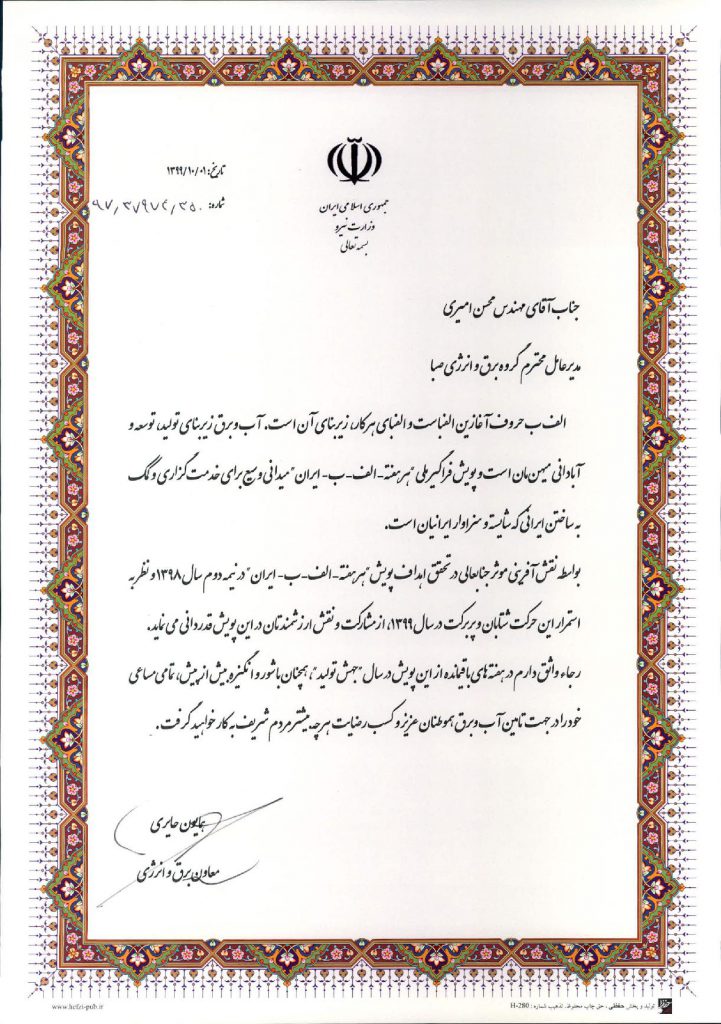 تاریخ: ۱۳۹۹/۱۰/۰۱
شماره: ۹۷/۳۷۹۷۴/۳۵۰
جمهوری اسلامی ایران
وزارت نیرو
بسمه تعالی
جناب آقای مهندس محسن امیری
مدیرعامل محترم گروه برق و انرژی صبا
الف ب حروف آغازین الفباست و الفبای هر کار، زیربنای آن است. آب و برق زیربنای تولید، توسعه و
آبادانی میهن مان است و پویش فراگیر ملی "هر هفته -الف-ب- ایران" میدانی وسیع برای خدمت گزاری و کمک
به ساختن ایرانی که شایسته و سزاوار ایرانیان است.
بواسطه نقش آفرینی موثر جنابعالی در تحقق اهداف پویش "هر هفته -الف-ب- ایران" در نیمه دوم سال ۱۳۹۸ و نظر به
استمرار این حرکت شتابان و پربرکت در سال ۱۳۹۹، از مشارکت و نقش ارزشمندتان در این پویش قدردانی می نماید.
رجاء واثق دارم در هفته های باقیمانده از این پویش در سال "جهش تولید"، همچنان با شور و انگیزه بیش از پیش، تمامی مساعی
خود را در جهت تامین آب و برق هموطنان عزیز و کسب رضایت هر چه بیشتر مردم شریف به کار خواهید گرفت.
همایون حایری
معاون برق و انرژی
www.hefzi-pub.ir
تولید و پخش حفظی، حق چاپ محفوظ. تذهیب شماره: H-280